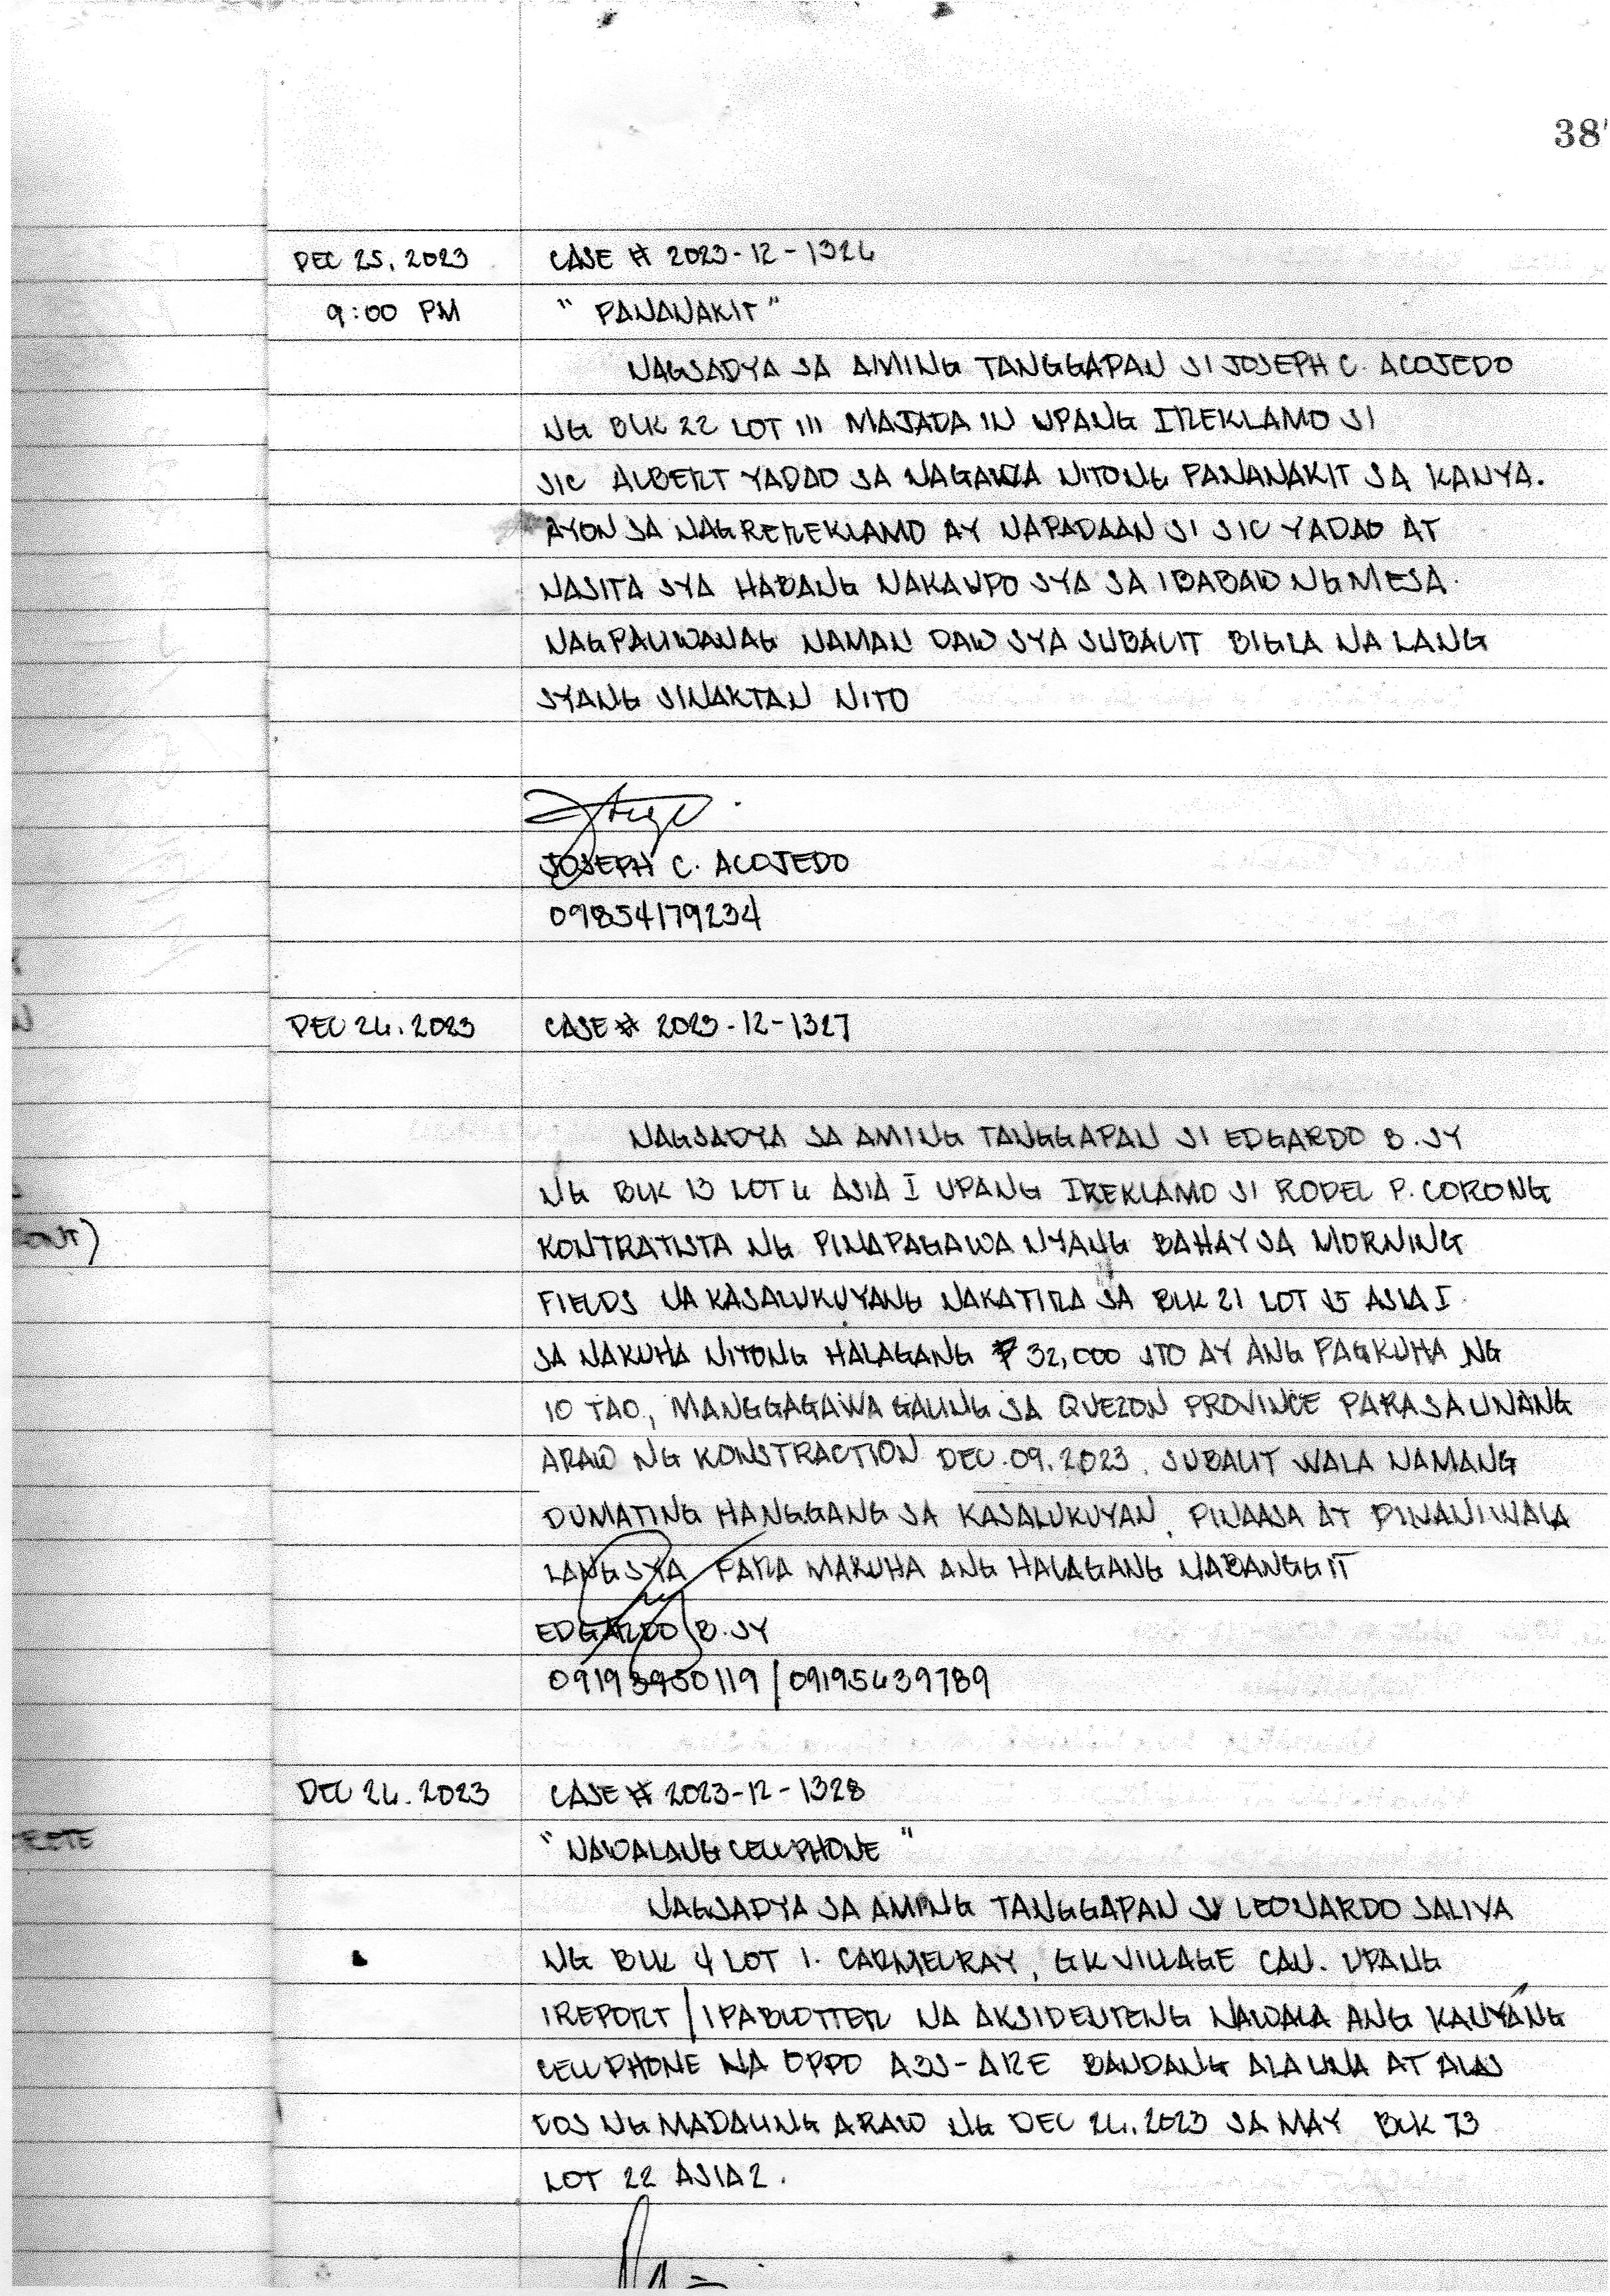 38
DEC 25, 2023 CASE # 2023-12-1326
9:00 PM " PANANAKIT"
NAGSADYA SA AMING TANGGAPAN SI JOSEPH C. ACOJEDO
NG BLK 22 LOT 111 MAJADA IN UPANG IREKLAMO SI
SIC ALBERT YADAO SA NAGAWA NITONG PANANAKIT SA KANYA.
AYON SA NAGREREKLAMO AY NAPADAAN SI SIC YADAO AT
NASITA SYA HABANG NAKAUPO SYA SA IBABAW NG MESA.
NAGPALIWANAG NAMAN DAW SYA SUBALIT BIGLA NA LANG
SYANG SINAKTAN NITO
JOSEPH C. ACOJEDO
09854179234
DEC 26, 2023 CASE # 2023-12-1327
NAGSADYA SA AMING TANGGAPAN SI EDGARDO B. SY
NG BLK 13 LOT 6 ASIA I UPANG IREKLAMO SI RODEL P. CORONG
KONTRATISTA NG PINAPAGAWA NYANG BAHAY SA MORNING
FIELDS NA KASALUKUYANG NAKATIRA SA BLK 21 LOT 15 ASIA I
SA NAKUHA NITONG HALAGANG ₱ 32,000 ITO AY ANG PAGKUHA NG
10 TAO, MANGGAGAWA GALING SA QUEZON PROVINCE PARA SA UNANG
ARAW NG KONSTRACTION DEC. 09. 2023. SUBALIT WALA NAMANG
DUMATING HANGGANG SA KASALUKUYAN, PINAASA AT PINANIWALA
LANG SYA PARA MAKUHA ANG HALAGANG NABANGGIT
EDGARDO B. SY
09193950119 / 09195639789
DEC 26. 2023 CASE # 2023-12-1328
"NAWALANG CELLPHONE "
NAGSADYA SA AMING TANGGAPAN SI LEONARDO SALIVA
NG BLK 4 LOT 1. CARMELRAY, GK VILLAGE CAN. UPANG
IREPORT / IPABLOTTER NA AKSIDENTENG NAWALA ANG KANYANG
CELLPHONE NA OPPO BANDANG ALA UNA AT ALAS
DOS NG MADALING ARAW NG DEC 26, 2023 SA MAY BLK 73
LOT 22 ASIA 2.